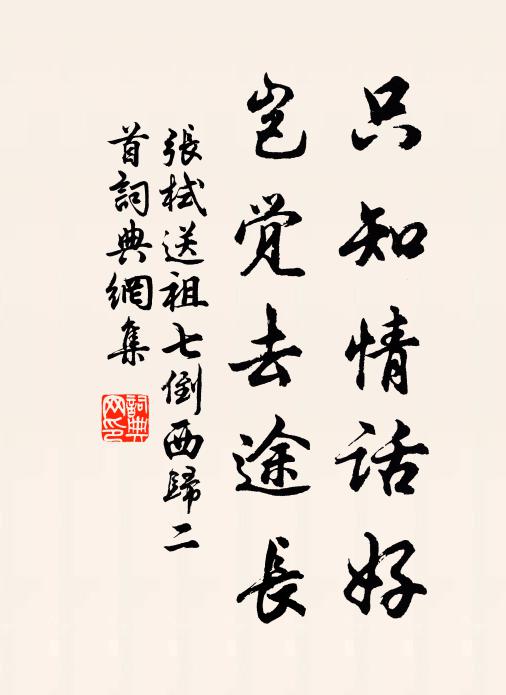 只知情话好
岂觉去途長
張栻送祖七倒西歸二
首詞典網集
詞典
网印